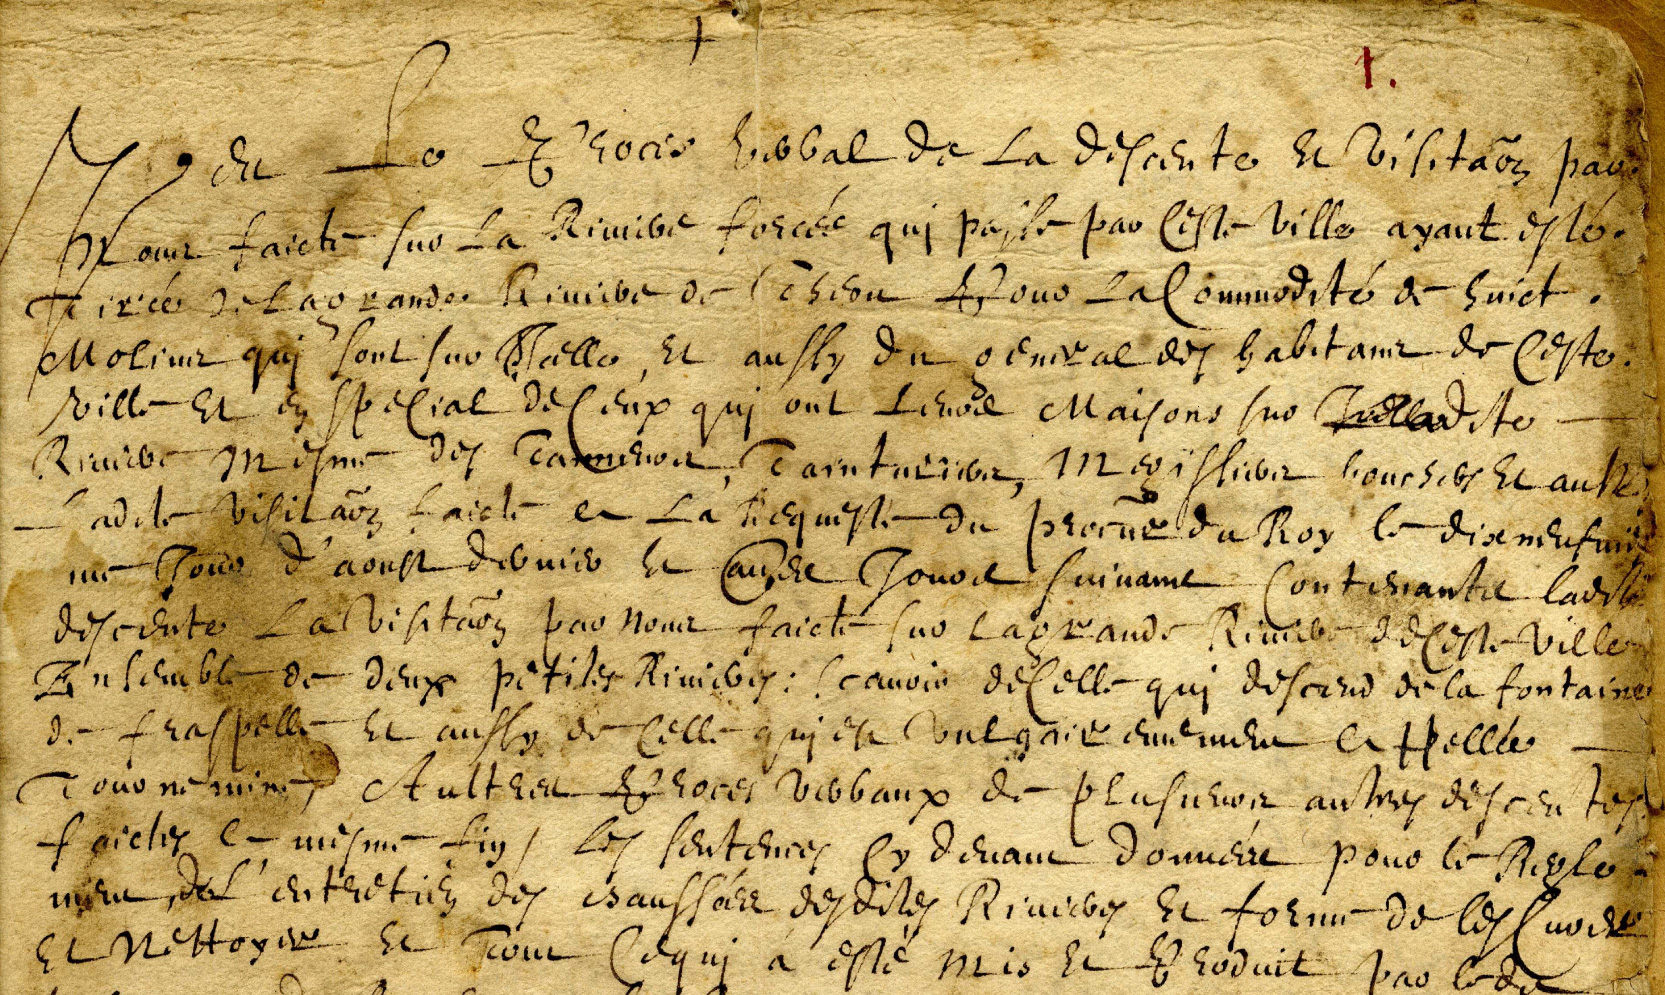 1.
Veu Le Procés verbal de La descente et visitaõn par
Nous faicte sur La Riviere forcée qui passe par Ceste ville ayant esté
Tirée de La grande Riviere de Therin Pour La Commodité de huict
Molins qui sont sur Icelle, et aussy du general des habitans de Ceste
ville et en special de Ceux qui ont Leurs Maisons sur Ladite
Riviere Mesme des Tanneurs, Tainturiers, Megissiers bouchers et aultr
Ladite visitaõn faicte a La Requeste du procur̃ du Roy le dixneufvie
me Jour d'aoust dernier et aut̃res Jours suivans Contenante ladite
descente La visitaõn par nous faicte sur La grande Riviere de Ceste ville
Ensemble de deux petites Rivieres: scavoir de Celle qui descend de la fontaine
de fraspelle et aussy de Celle qui est vulgairemement appellée
Tournemine, Aultres Procés verbaux de plusieurs autres descentes
faictes a mesme fin, Les sentences Cy devant données pour le Regle-
ment, de L'entretien des chaussées desdites Rivieres et forme de les Curer
et Nettoyer et Tout Ce qui a esté Mis et Produit par ledit